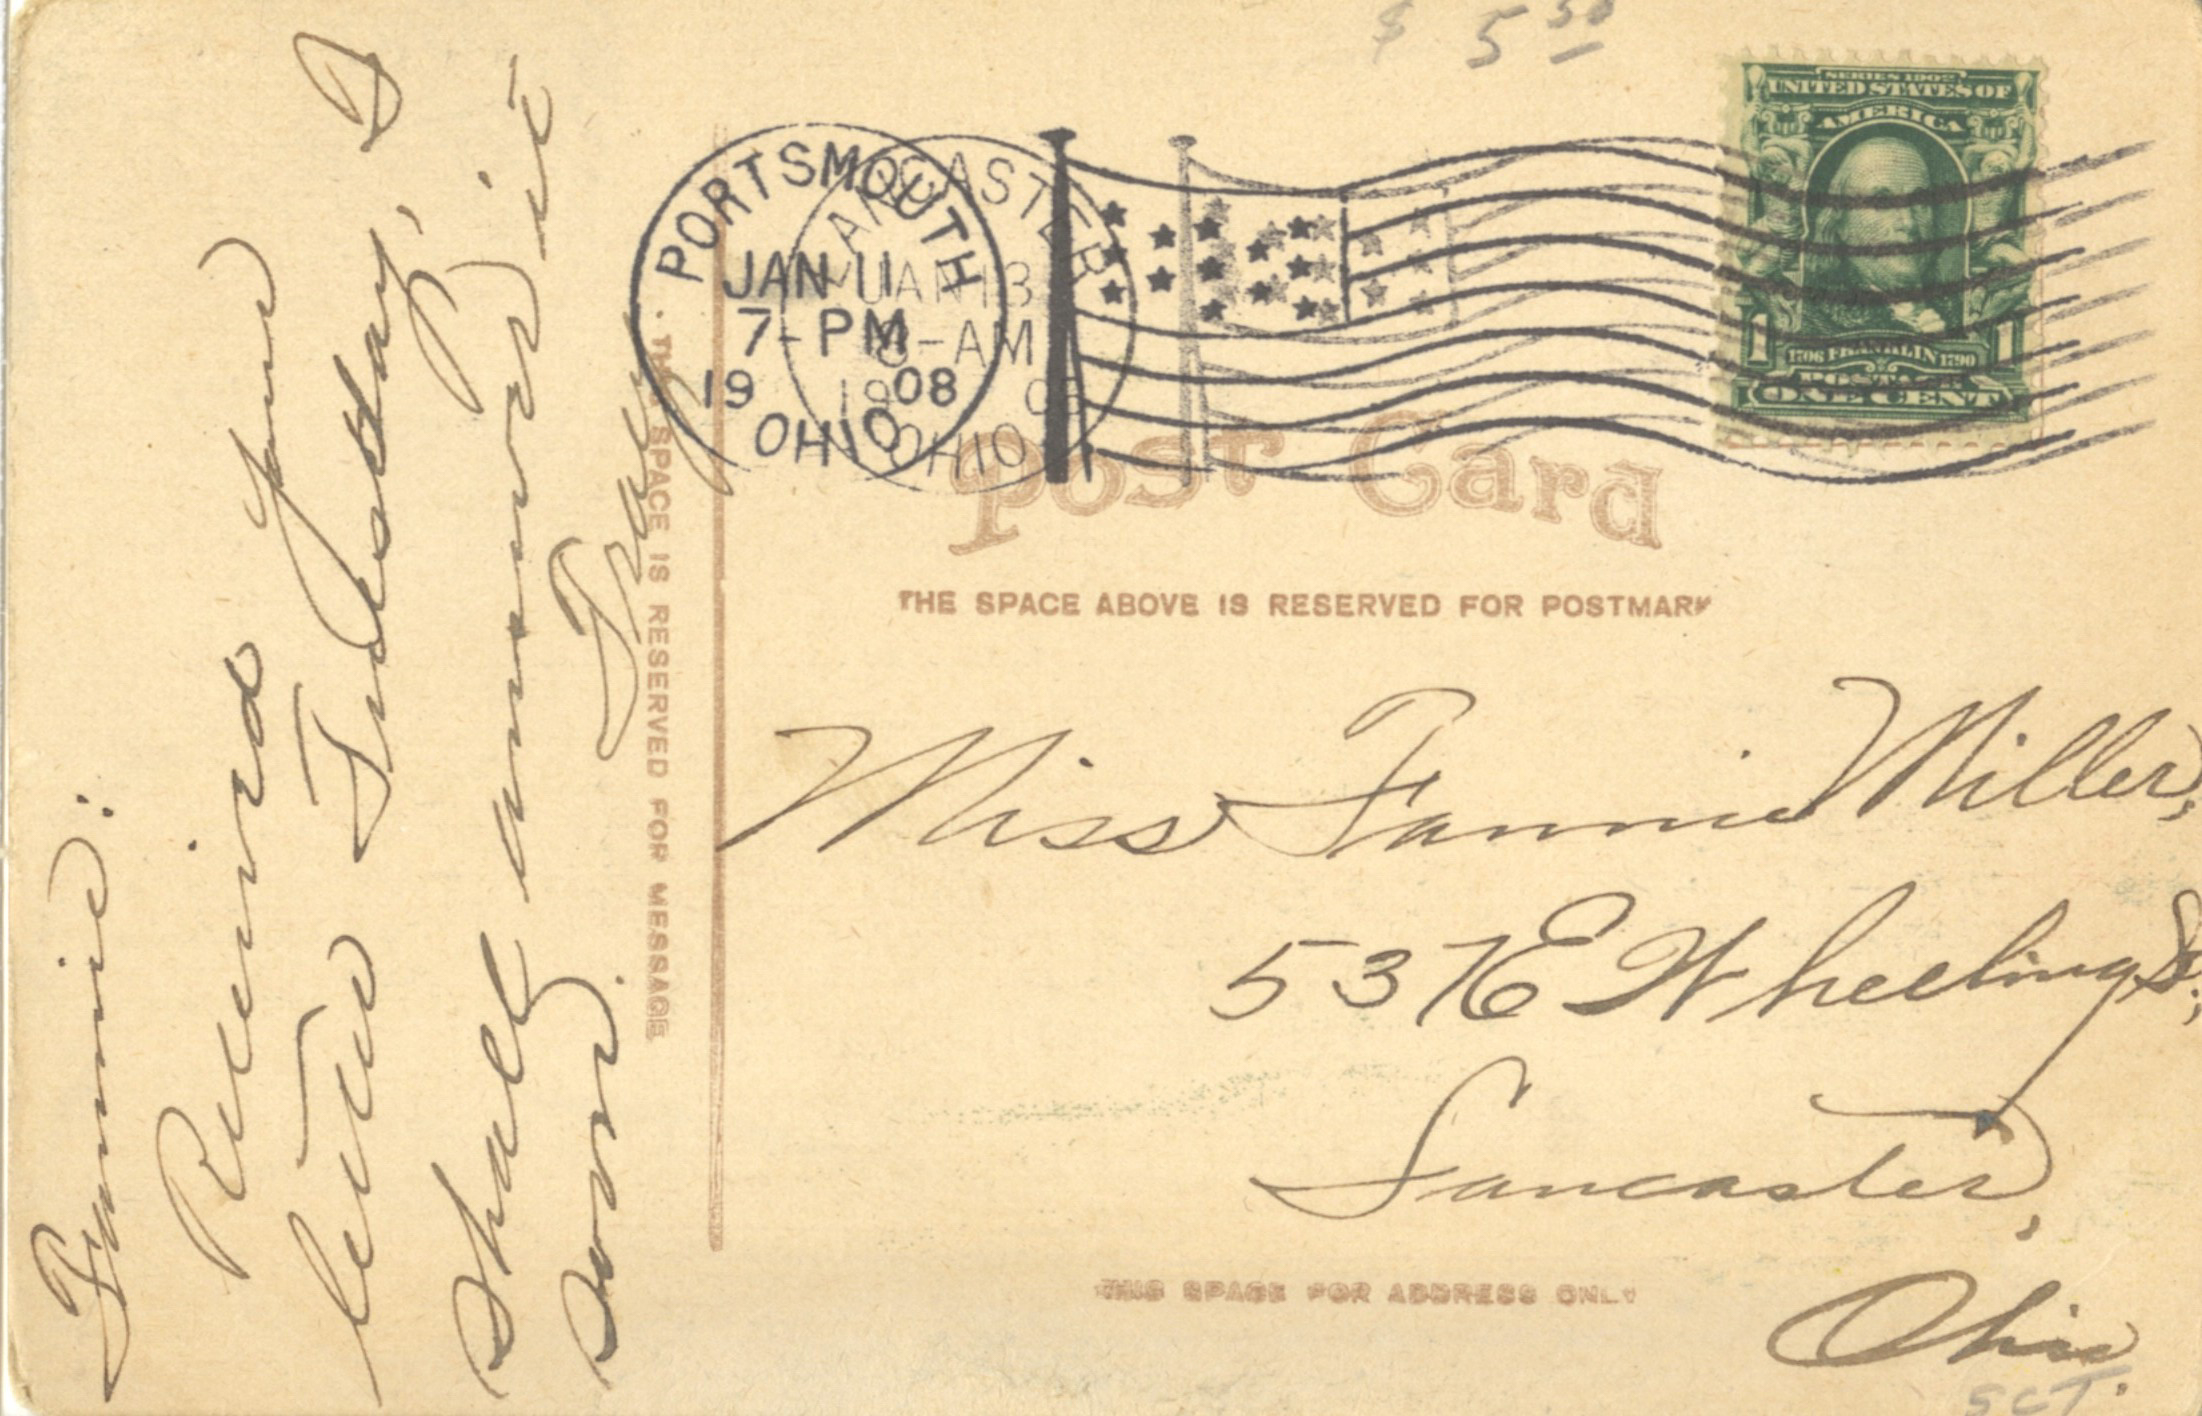 $ 5 50
SERIES 1902
UNITED STATES OF
AMERICA
1 1
1706 FRANKLIN 1790
POSTAGE
ONE CENT
PORTSMOUTH
JAN 11
7-PM
1908
OHIO
LANCASTER
JAN 13
-AM
1908
OHIO
Post Card
THE SPACE ABOVE IS RESERVED FOR POSTMARK
THE SPACE IS RESERVED FOR MESSAGE
Fannie:
Received your
letter Tuesday, I
shall answer it
soon.
Miss Fannie Miller,
537 E Wheeling St.,
Lancaster,
Ohio.
THIS SPACE FOR ADDRESS ONLY
SCT